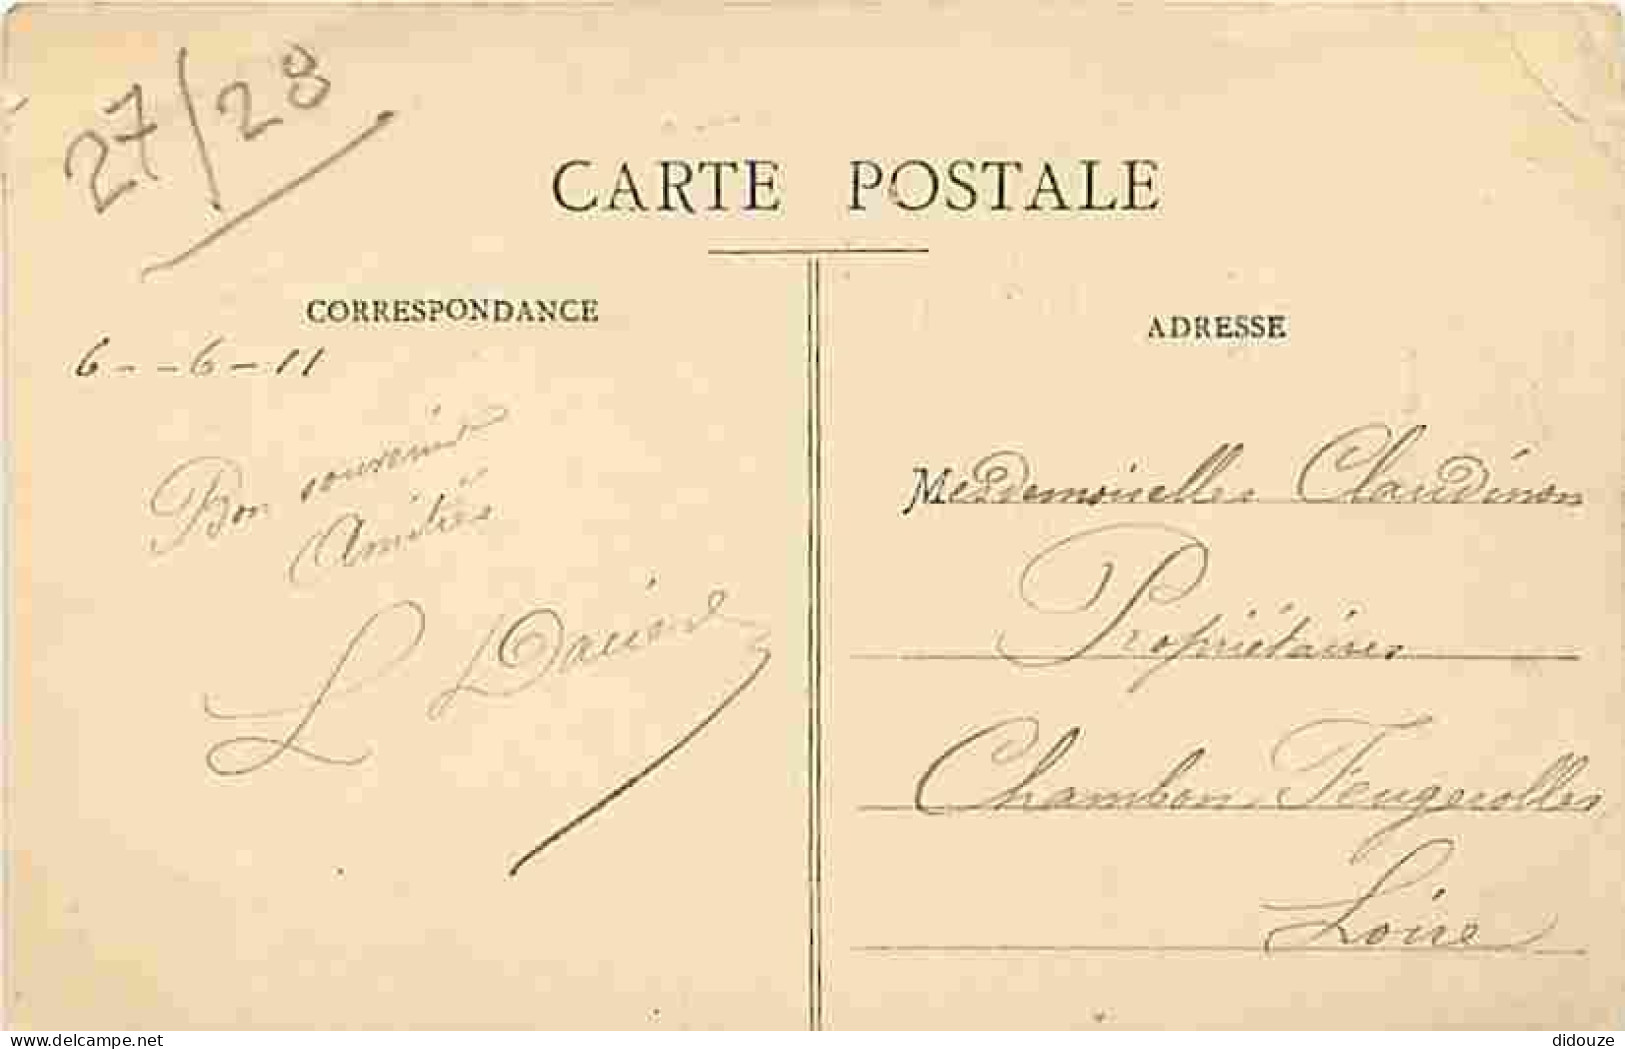 27/28
CARTE POSTALE
CORRESPONDANCE
6 - - 6 - 11
Bon souvenir
Amitiés
L
ADRESSE
Mesdemoiselles Claudinon
Propriétaires
Chambon-Feugerolles
Loire
www.delcampe.net
didouze